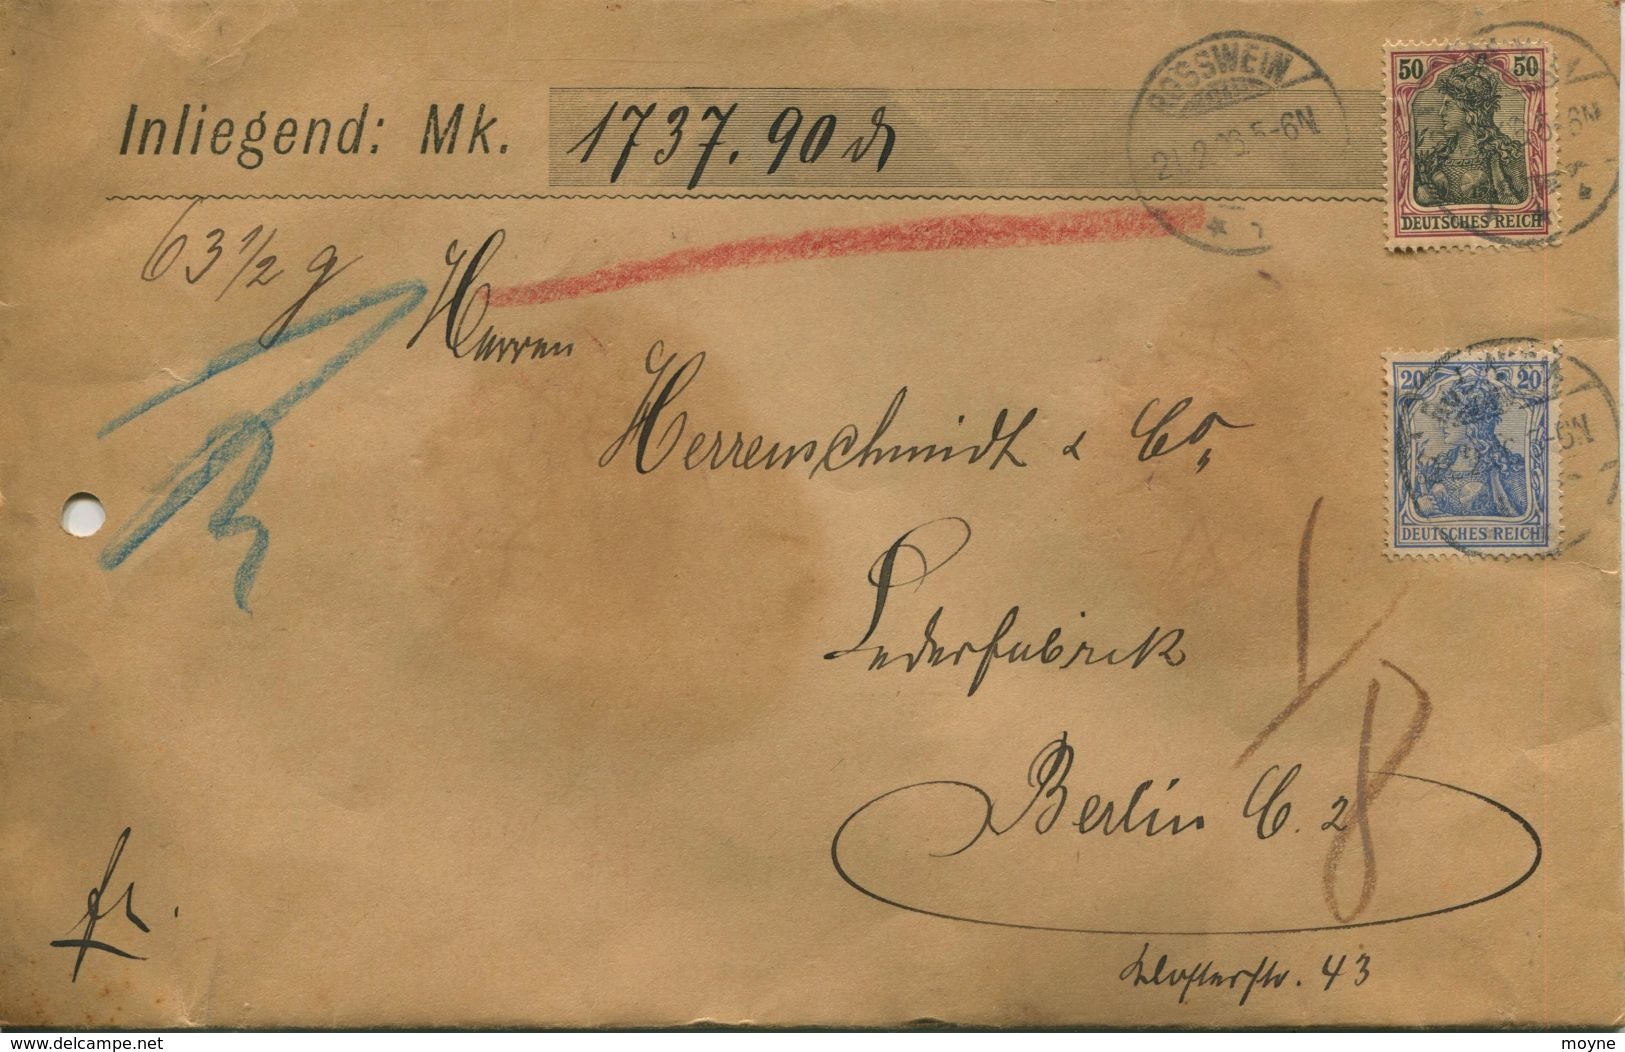 Inliegend: Mk. 1737.90 ₰
ROSSWEIN
21.2.06. 5-6N
50 50
DEUTSCHES REICH
63 1/2 g
Herren
Herrenschmidt & Co.
20 20
DEUTSCHES REICH
Lederfabrick
Berlin C. 2
Klosterstr. 43
fr.
18
delcampe.net
moyne